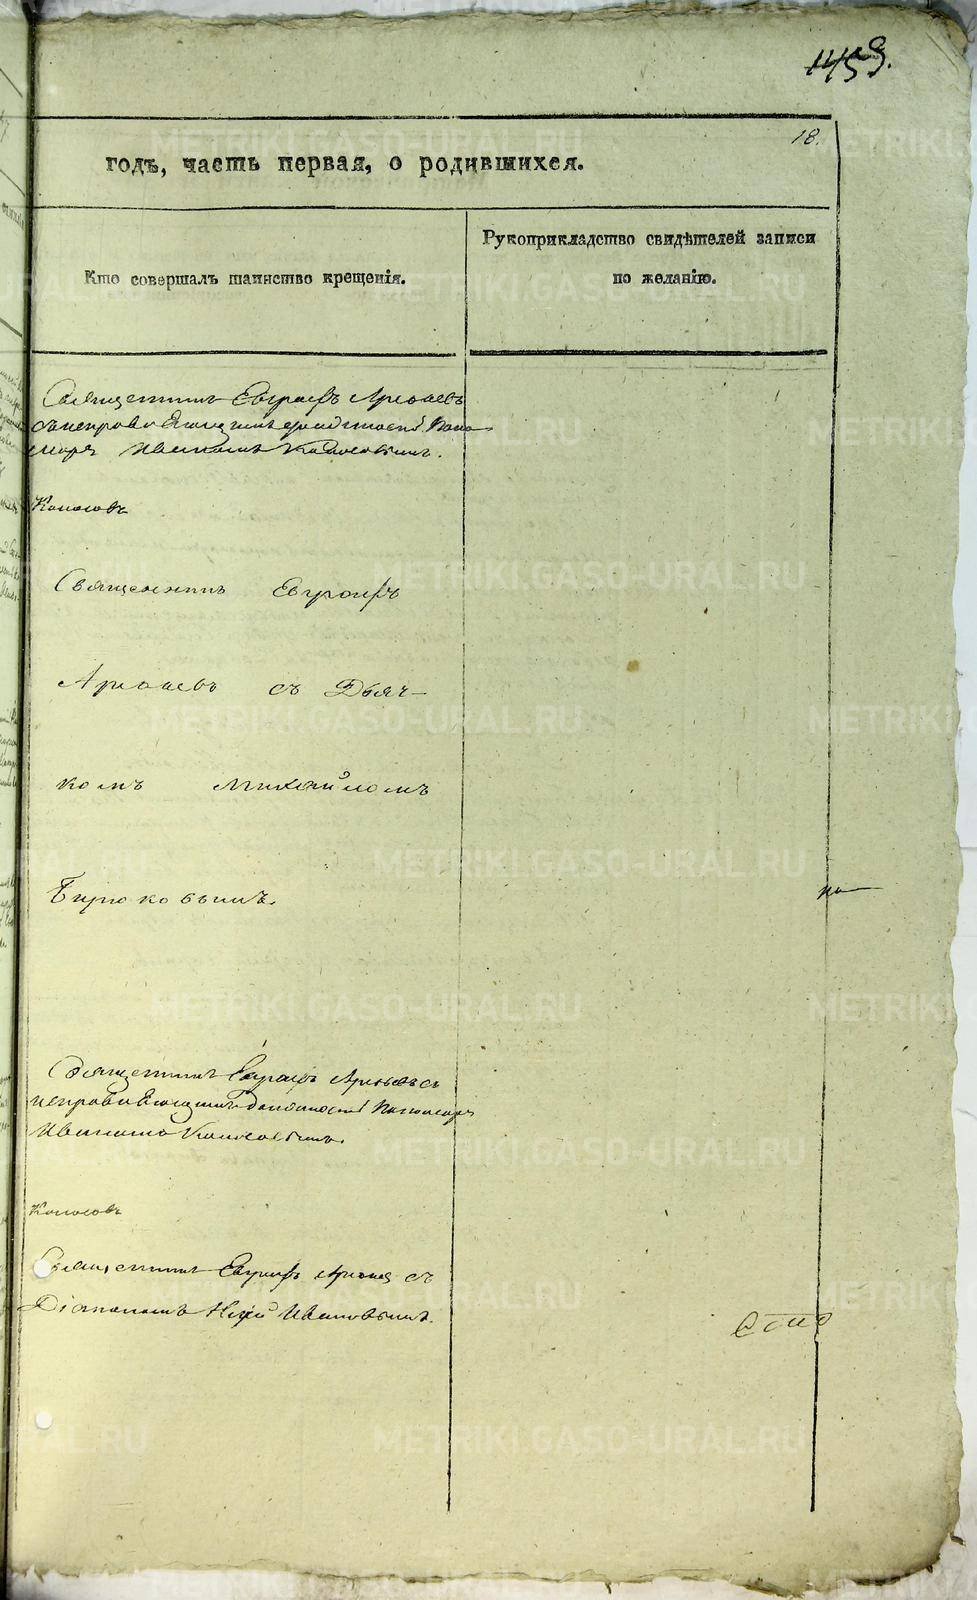 1459.
18.
годъ, часть первая, о родившихся.
Кто совершалъ таинство крещенія.
Рукоприкладство свидѣтелей записи
по желанію.
Священникъ Евграфъ Арефьевъ
съ исправляющимъ должность Поно-
маря Иваномъ Колосовымъ.
Колосовъ
Священникъ Евграфъ
Арефьевъ съ Дьяч-
комъ Михайломъ
Бирюковымъ.
по
Священникъ Евграфъ Арефьевъ съ
исправляющимъ должность Пономаря
Иваномъ Колосовымъ.
Колосовъ
Священникъ Евграфъ съ
Діакономъ Ивановымъ.
METRIKI.GASO-URAL.RU